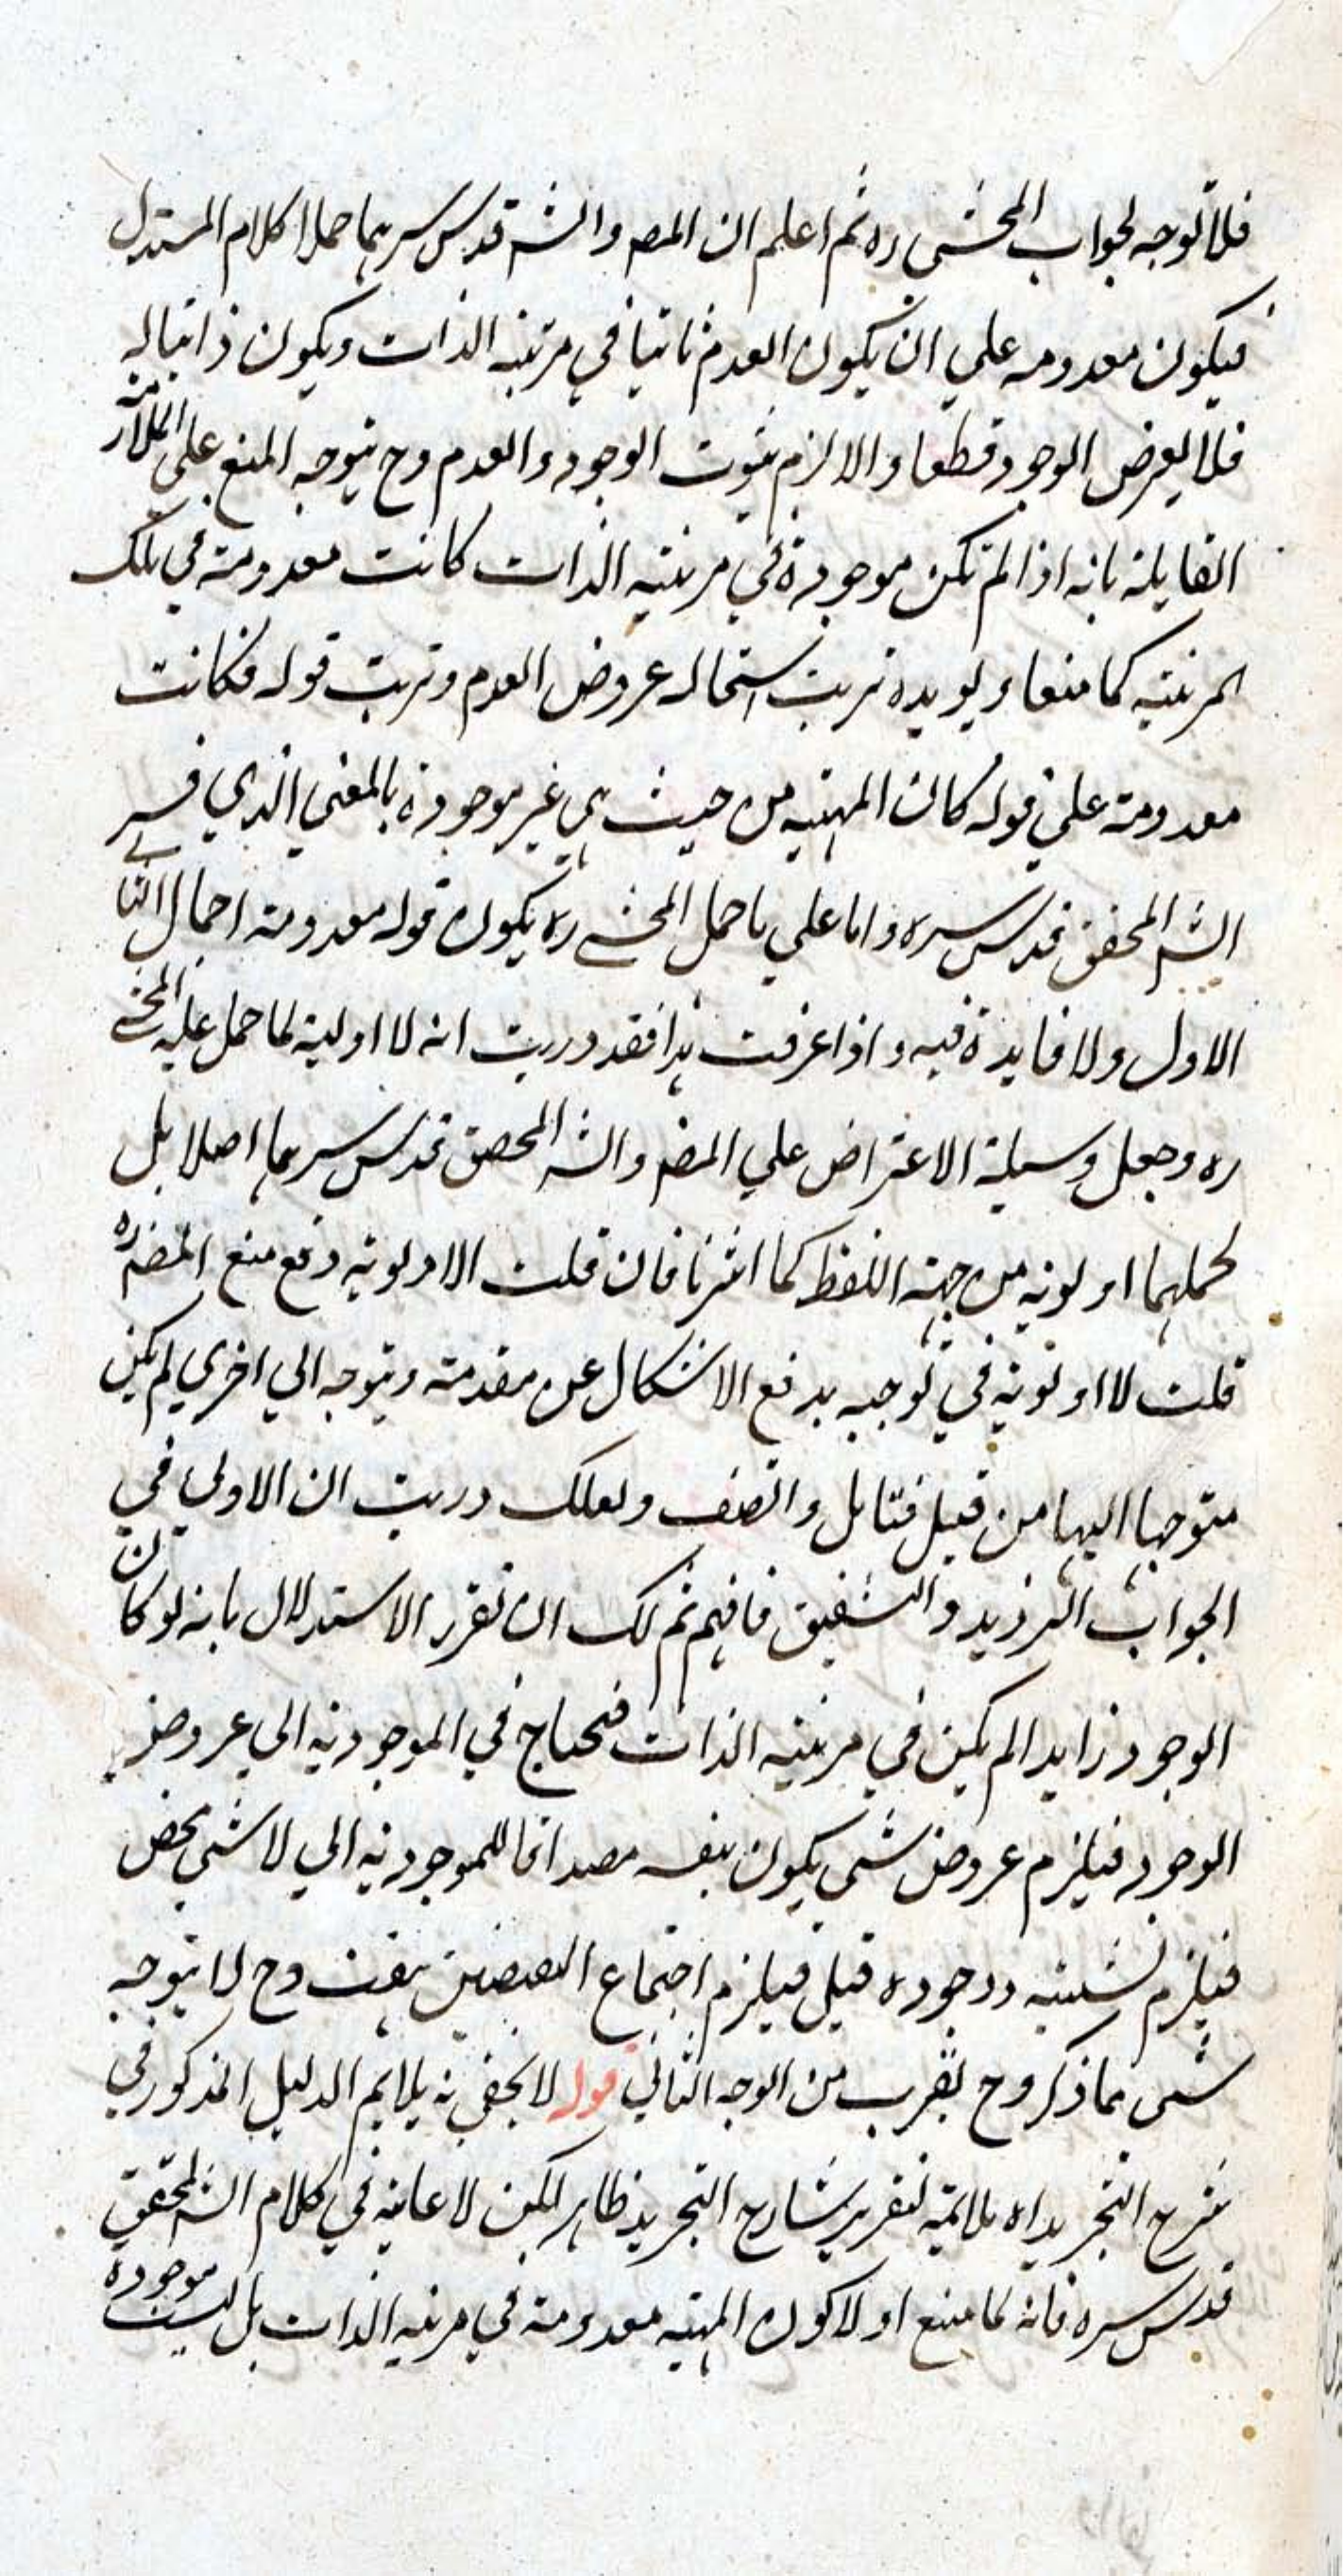 فلا توجه لجواب المحشي ره ثم اعلم ان المصـ والشـ قدس سرهما حملا كلام المستدل
فيكون معدومه علي ان يكون العدم ثابتا في مرتبه الذات ويكون ذاتيا له
فلا يعرض الوجود قطعا والا لزم ثبوت الوجود والعدم وح يتوجه المنع علي الملازمة
القايلة بانه اذا لم تكن موجودة في مرتبته الذات كانت معدومة في تلك
المرتبته كما منعا ويويده ترتب استحاله عروض العدم وترتب قوله فكانت
معدومة علي قوله كان المهيته من حيث هي غير موجودة بالمعني الذي فسر
الشـ المحقق قدس سره واما علي ما حمل المحشے ره يكون قوله معدومة اجمال الثانے
الاول ولا فايدة فيه واذا عرفت هذا فقد دريت انه لا اولية لما حمل عليه المحشے
ره وجعل وسيلة الاعتراض علي المصـ والشـ المحقق قدس سرهما اصلا بل
لحملهما اولويه من جهته اللفظ كما اشرنا فان قلت الاولويه دفع منع المصـ ره
قلت لا اولويه في توجيه يدفع الاشكال عن مقدمة ويتوجه الي اخري لم يكن
متوجها اليها من قبل فتامل وانصف ولعلك دريت ان الاولي في
الجواب الترديد والتشقيق فافهم ثم لك ان تقرر الاستدلال بانه لو كان
الوجود زايدا لم يكن في مرتبته الذات فيحتاج في الموجوديه الي عروض
الوجود فيلزم عروض شي يكون بنفسه مصداقا للموجوديه الي لا شي محض
فيلزم شيئيته ووجوده قبل فيلزم اجتماع النقيضين بتفت وح لا يتوجه
شي مما ذكر وح يقرب من الوجه الثاني قوله لا يخفي انه يلايم الدليل المذكور في
شرح التجريد اه ملائمته لتقرير شارح التجريد ظاهر لكن لا عاينه في كلام الشـ المحقق
قدس سره فانه لما منع اولا كون المهيته معدومة في مرتبه الذات بل ليست موجودة